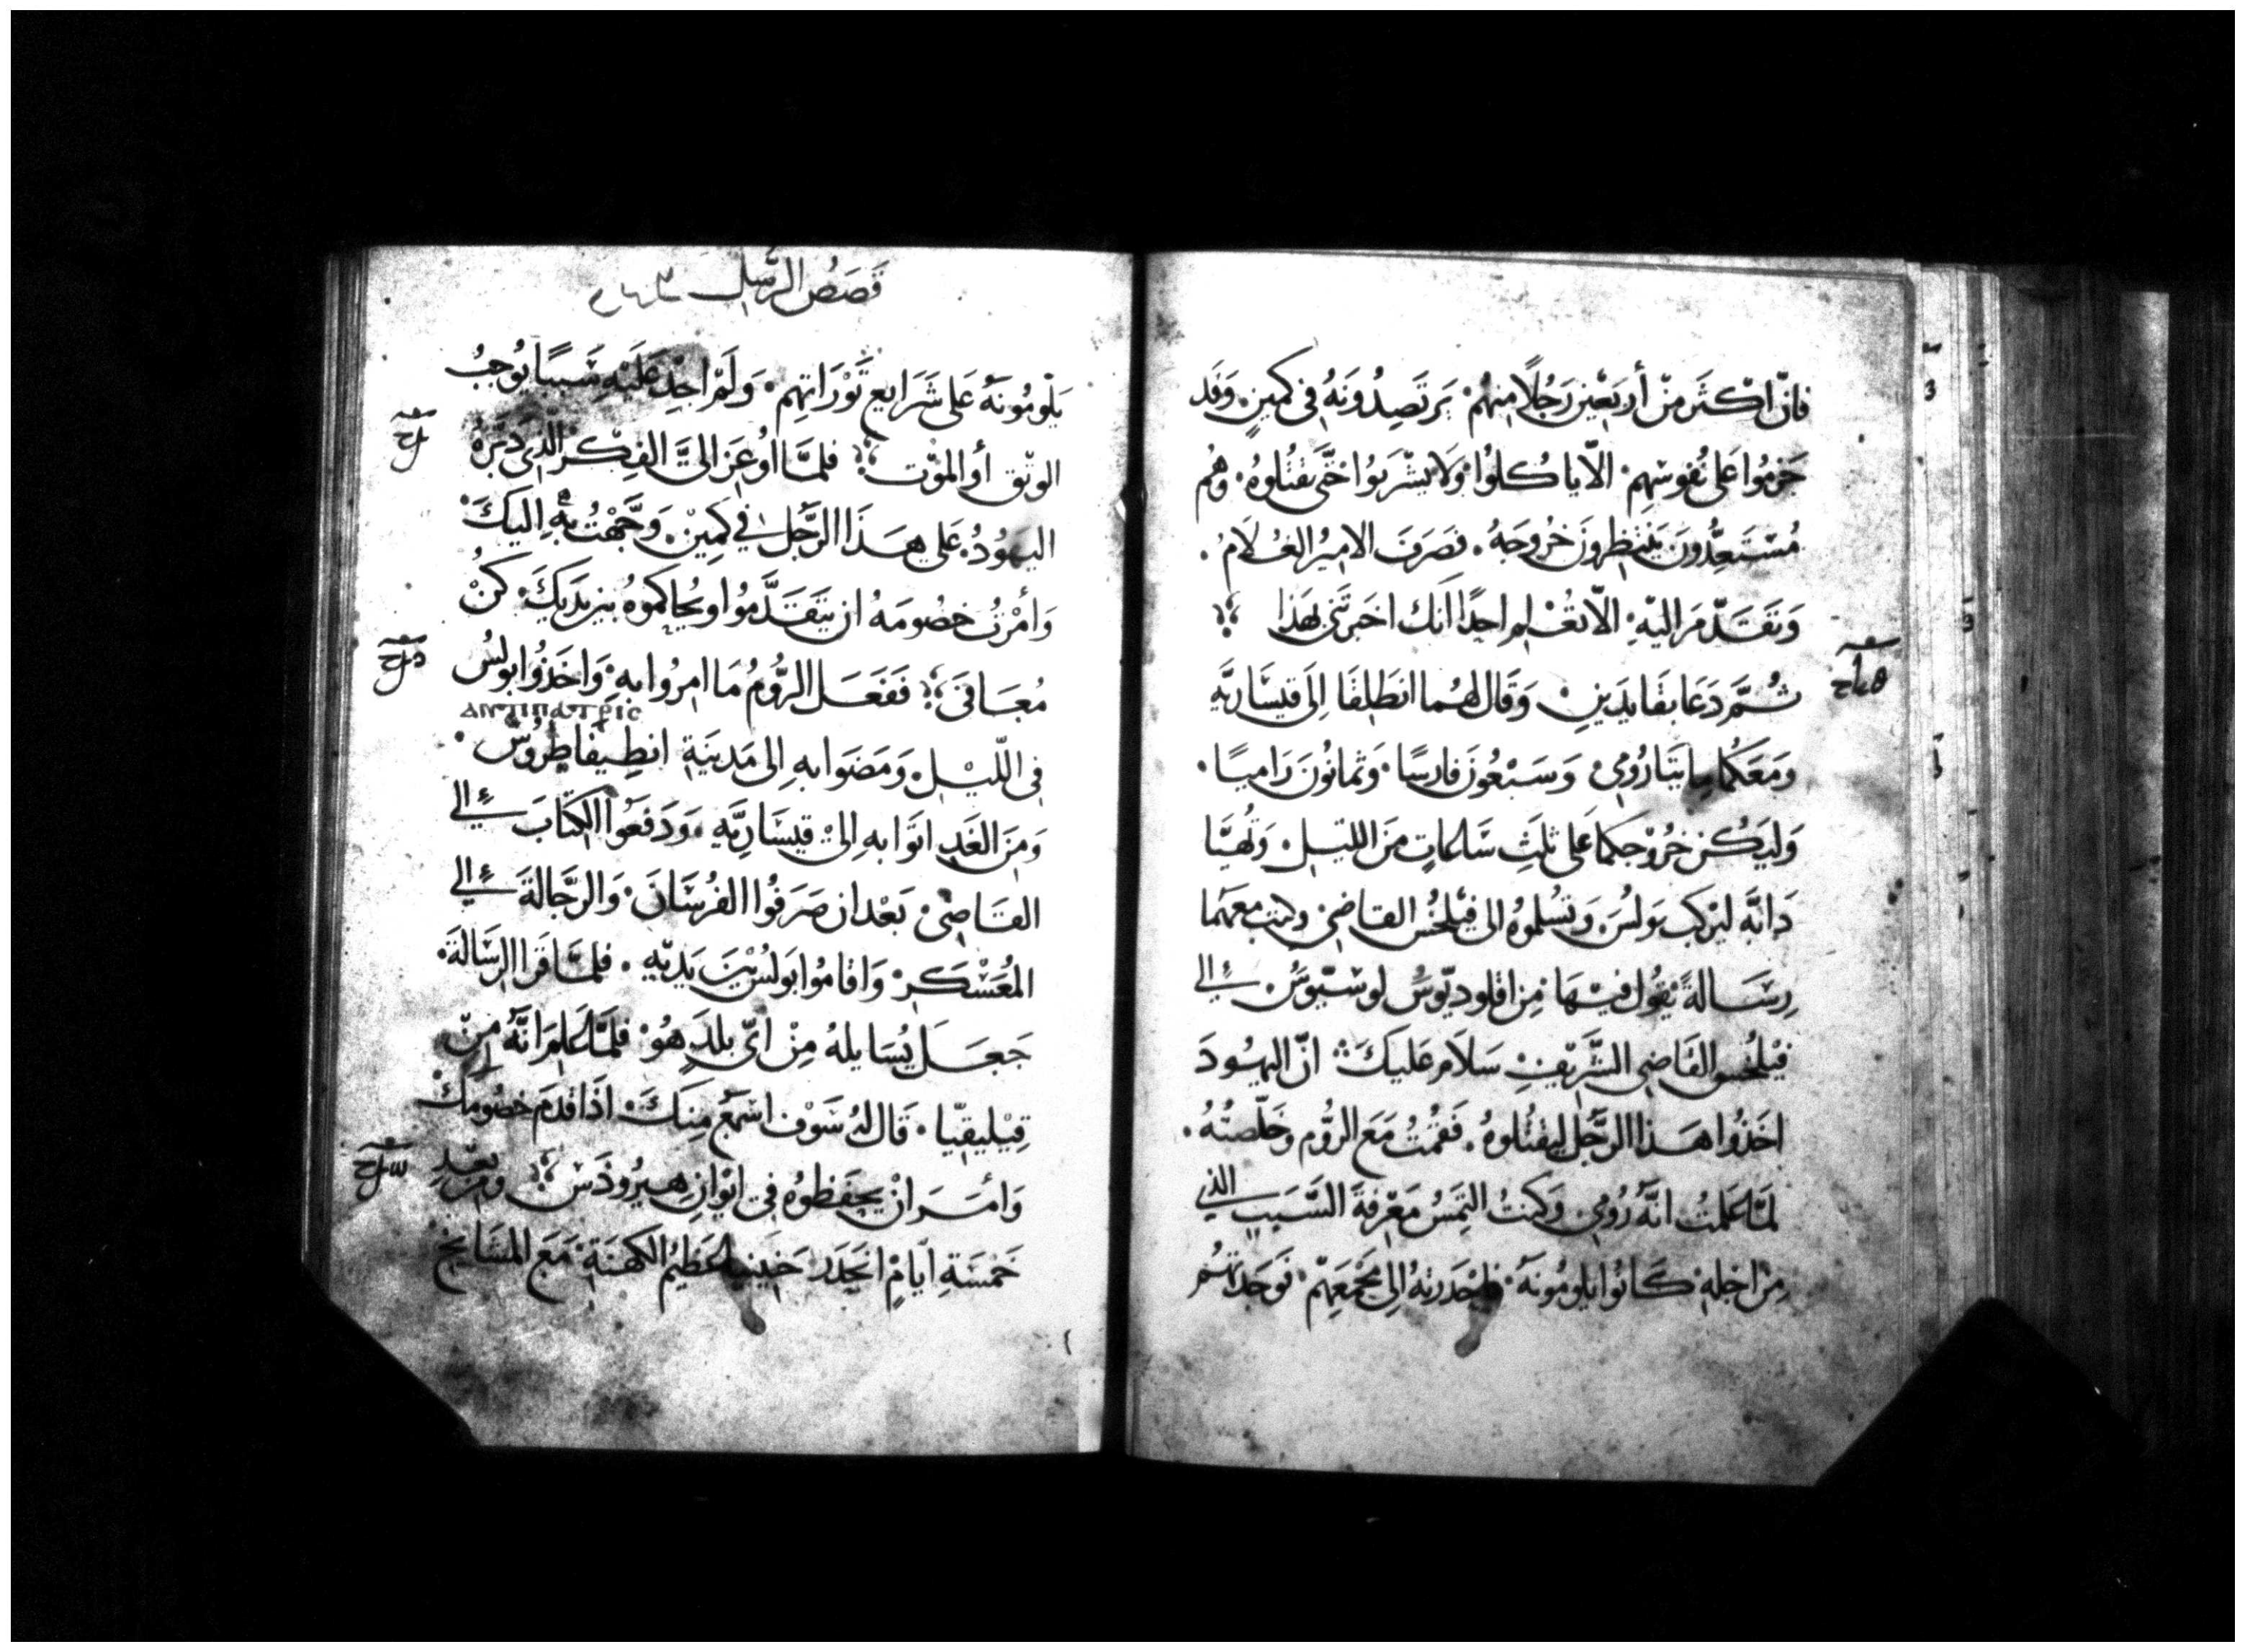 فانّ اكْثَر منْ أربَعْين رَجُلاً منهُم يَرتَصِدُونَهُ فى كمينٍ. وَقَد
حَرمُوا عَلى نُفوسْهِم الاّ ياكلوُا وَلا يشْرَبوُا حَتَّى يَقتُلوهُ. وَهُم
مُسْتَعِدُّونَ يَنتظِرونَ خرُوجَهُ. فصَرَفَ الاميرُ الغُلاَمُ.
وَتقَدَّمَ اليَهِ الاّ تعُلم احِدًا أنك اخبَرتَنى بهَذا
ثُمَّ دَعَا بقَايدَينِ وَقَال لهُما انطَلِقَا إلىَ قيسَاريَّه
وَمَعَكُما مايتَا رُومي. وَسَبْعُونَ فارسًا. وَثمانُونَ رَاميًا.
وَليَكُن خرُوْجكما عَلى ثلَثِ سَاعاتٍ منَ الليْل. وَتُهيَّا
دَابَّه ليرْكب بَولسُ. وَتسُلموُهُ الى فيْلخسُ القاضِي. وكتب معهمَا
رسَالةً يقوُل فيْهَا مِن اقلوديّوسُ لوسيّوسُ الى
فيْلخس القَاضِى الشَّريْفِ سَلاَم عَليكَ انّ اليهُودَ
اخَذُوا هَذا الرجُل ليقتُلوهُ. فَقمُتُ مَعَ الرُوم وَخلّصتُهُ.
لمَّا عَلمْتُ انّهُ رُومِي. وَكنتُ التمِسُ مَعْرفةَ السَّبَبِ الذى
مِنْ اجلهِ كَانوُا يلومُونَهُ. فاحْدَرتهُ إلى مَجْمَعِهمْ. فَوجَدتهُم
قَصَصُ الرسُل ٢٦٣
يَلْومُونَهُ عَلى شَرَايع تَوْرَاتِهِم. وَلَمْ اجِدْ عَليَهِ سَببًا يُوجبُ
الوثَق أو الموْت فلمَّا اوُعِزَ اليَّ الفِكْر الذى دَبّرَهُ
اليهُودُ. عَلى هَذا الرَجُل في كمِينْ. وَجَّهْتُ بهِ اليكَ.
وَأمْرتُ خصُومَهُ ان يتَقَدَّمُوا ويحُاكموهُ بين يَديَكَ. كنُ
مُعَافىَ فَفعَل الرُومُ مَا امِرُوا بهِ. وَاخَذوُا بولسُ
ⲁⲛⲧⲓⲡⲁⲧⲣⲓⲥ
فى اللّيْل. وَمَضَوا بهِ إلى مَدينَةِ انطِيفاطِروُسُ.
وَمنَ الغَدِ اتَوا بهِ الىْ قيسَاريَّه. وَدَفعَوُا الكتَابَ الى
القَاضِيْ بَعْد ان صَرَفوُا الفرُسَانَ. وَالرَّجالةَ الى
المُعَسْكَرْ وَاقامُوا بَولسُ بَيْنَ يَديَهِ. فلمَّا قرَا الرسَالةَ.
جَعَل يُسَايلهُ مِنْ ايّ بلدٍ هُوْ فلمَّا عَلمَ انَّهُ منْ
قيْليقيّا. قَال لهُ سَوْف اسْمَعُ مِنكَ. اذَا قدمَ خصُومكَ
وَأمَرَ انْ يحفَظوُه فى ايْوانِ هيرُودَسْ ومن بعْدِ
خمْسَةِ ايامٍ انحَدَرَ حَنينيا عَظيمُ الكهنَةِ. مَعَ المشَايخْ